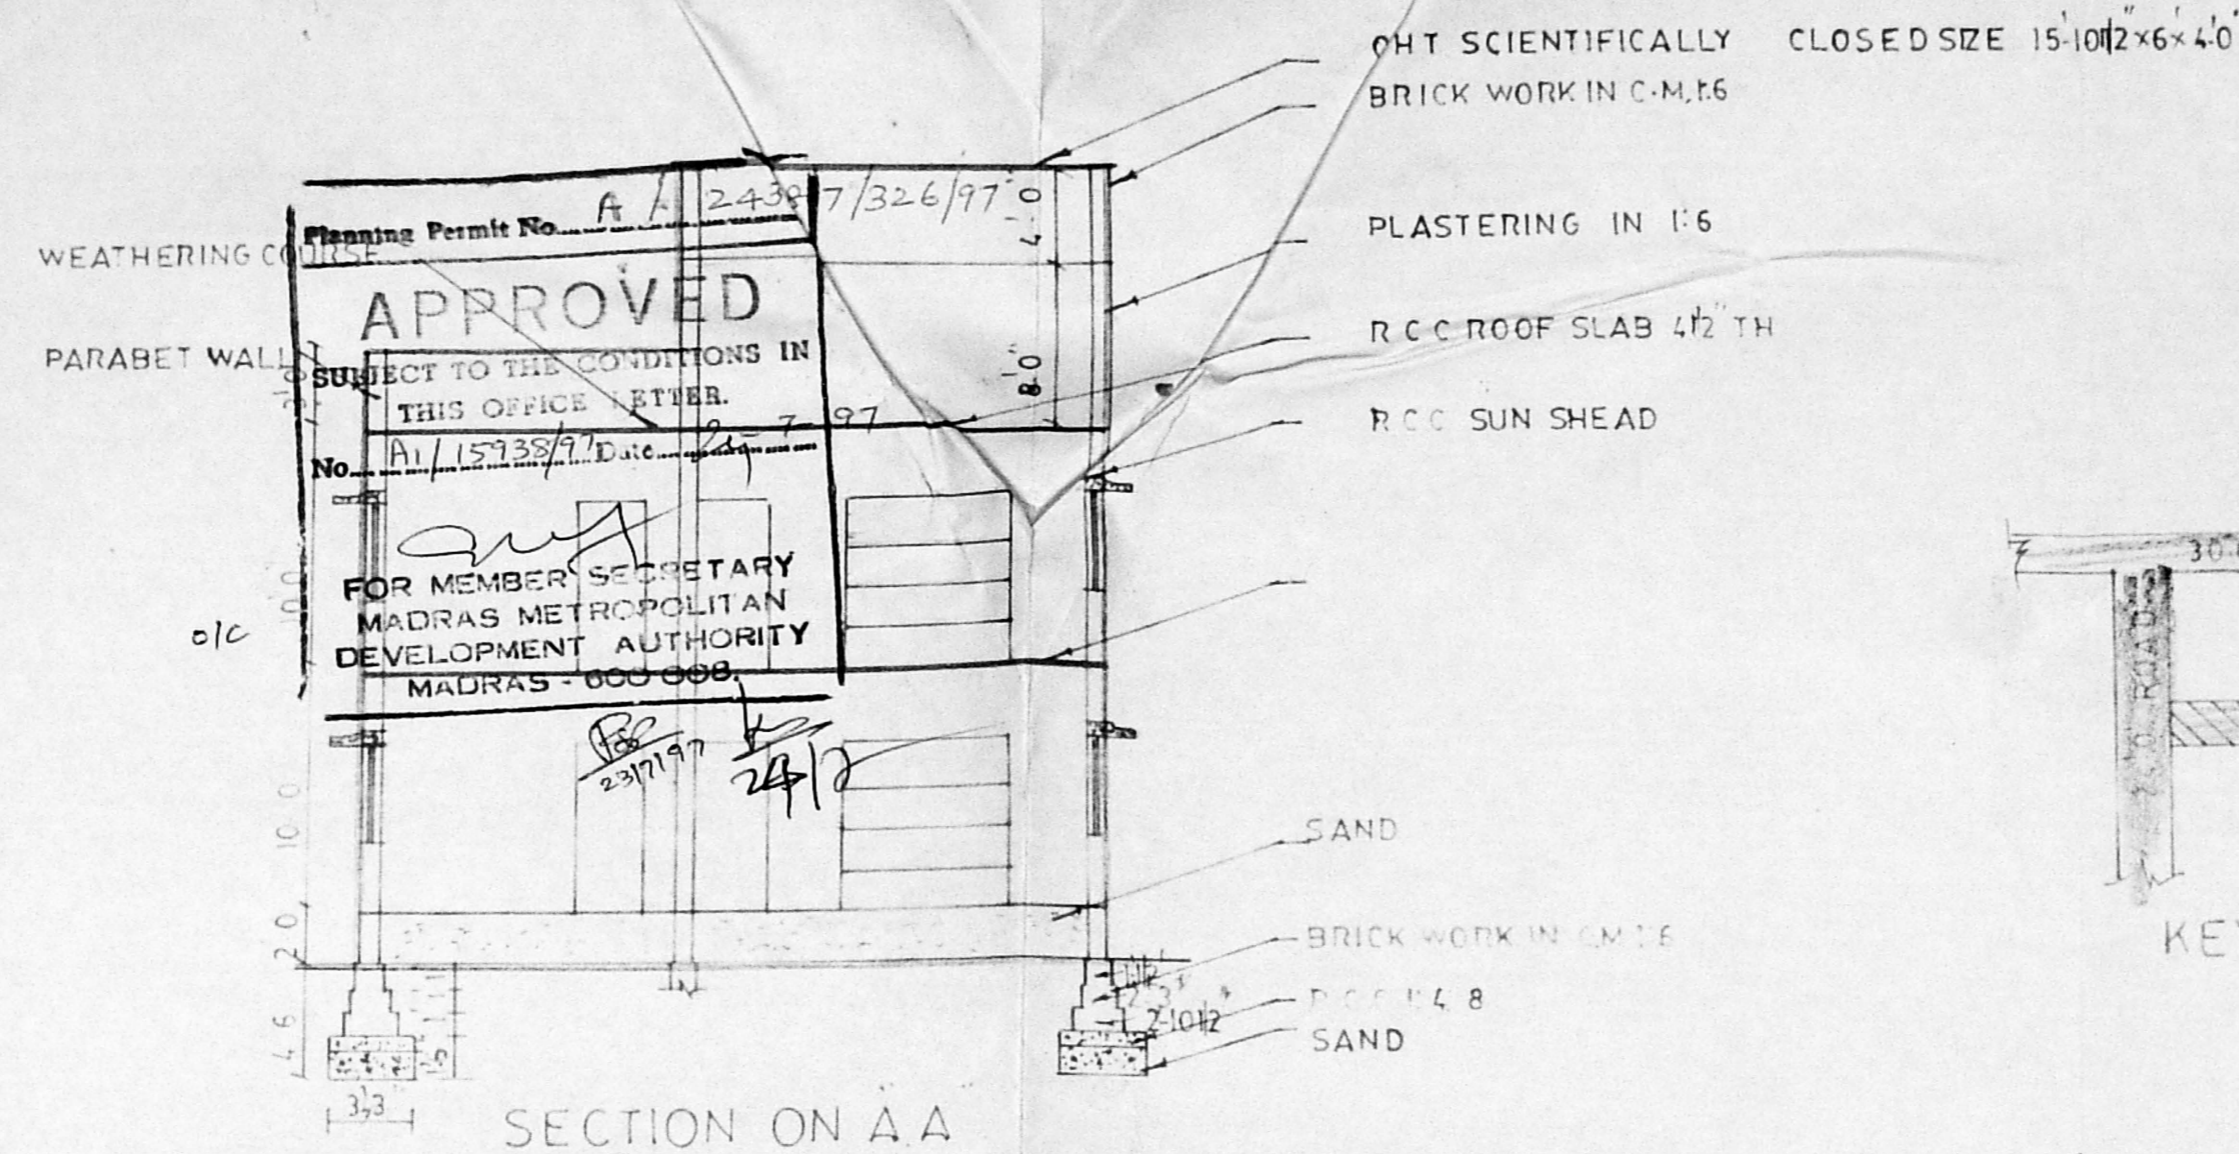 OHT SCIENTIFICALLY CLOSED SIZE 15'-10 1/2"×6'×4'-0"
BRICK WORK IN C.M. 1:6
PLASTERING IN 1:6
R C C ROOF SLAB 4 1/2" TH
R C C SUN SHEAD
SAND
BRICK WORK IN C.M 1:6
4 8
SAND
WEATHERING COURSE
PARABET WALL
o/c
Planning Permit No. A / 7/326/97
APPROVED
SUBJECT TO THE CONDITIONS IN
THIS OFFICE LETTER.
No. A1/15938/97 Date 7-97
FOR MEMBER SECRETARY
MADRAS METROPOLITAN
DEVELOPMENT AUTHORITY
MADRAS - 600 008.
23/7/97
24/7
4'-0"
8'-0"
10 0
10 0
2 0
4 6
1'-1 1/2
2-3"
2-10 1/2
3'3"
SECTION ON A A
30
ROAD
KE